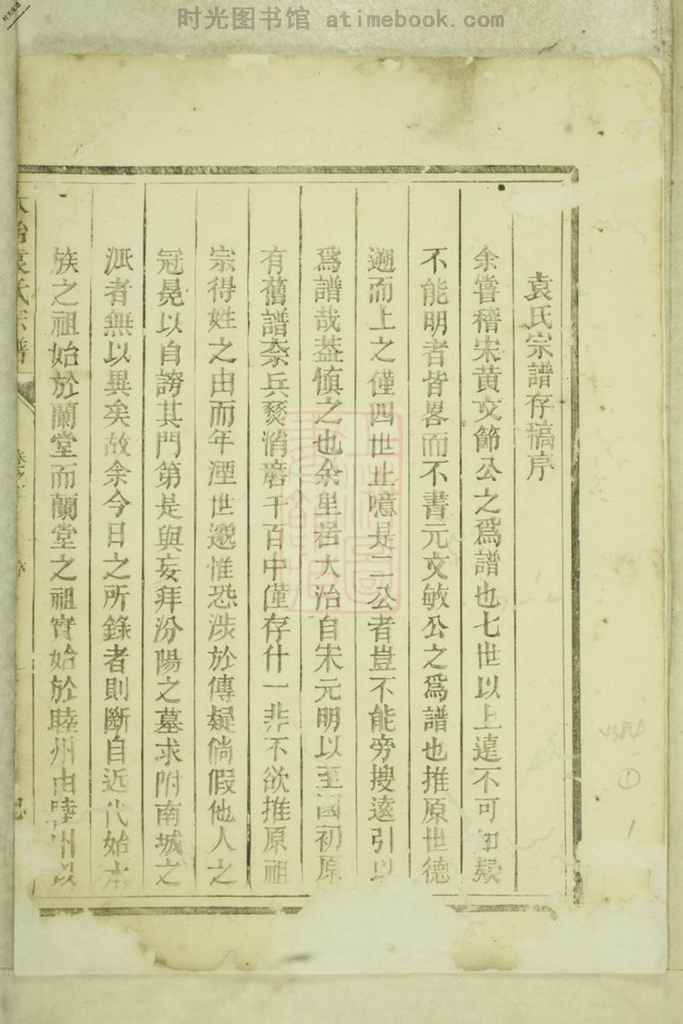 时光图书馆 atimebook.com
袁氏宗譜存稿序
余嘗稽宋黃文節公之爲譜也七世以上遠不可知疑
不能明者皆畧而不書元文敏公之爲譜也推原世德
遡而上之僅四世止噫是二公者豈不能旁搜遠引以
爲譜哉葢愼之也余里居大冶自宋元明以至國初原
有舊譜柰兵燹消磨千百中僅存什一非不欲推原祖
宗得姓之由而年湮世邈惟恐涉於傳疑倘假他人之
冠冕以自謗其門第是與妄拜汾陽之墓求附南城之
派者無以異矣故余今日之所錄者則斷自近代始本
族之祖始於蘭堂而蘭堂之祖實始於睦州由睦州以
大冶袁氏宗譜